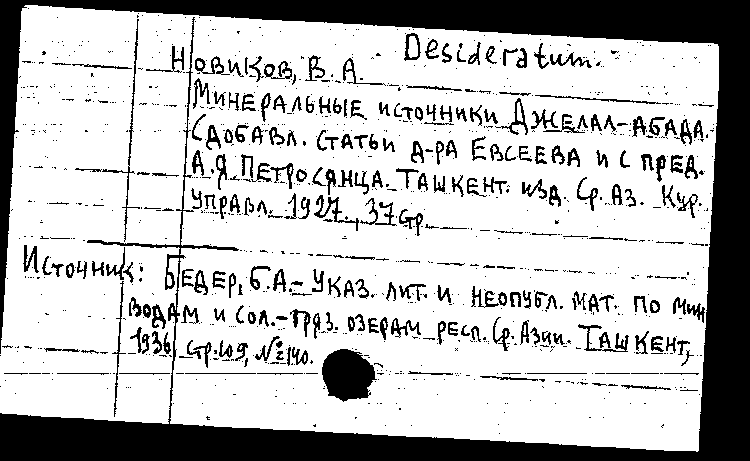 Desideratum.
Новиков, В. А.
Минеральные источники Джелал-Абада.
С добавл. статьи д-ра Евсеева и с пред.
А.Я. Петросянца. Ташкент. изд. Ср. Аз. Кур.
управл. 1927., 37 стр.
Источник: Бедер, Б. А. - Указ. лит. и неопубл. мат. по мин
водам и сол.-гряз. озерам респ. Ср. Азии. Ташкент,
1936, стр. 109, № 140.